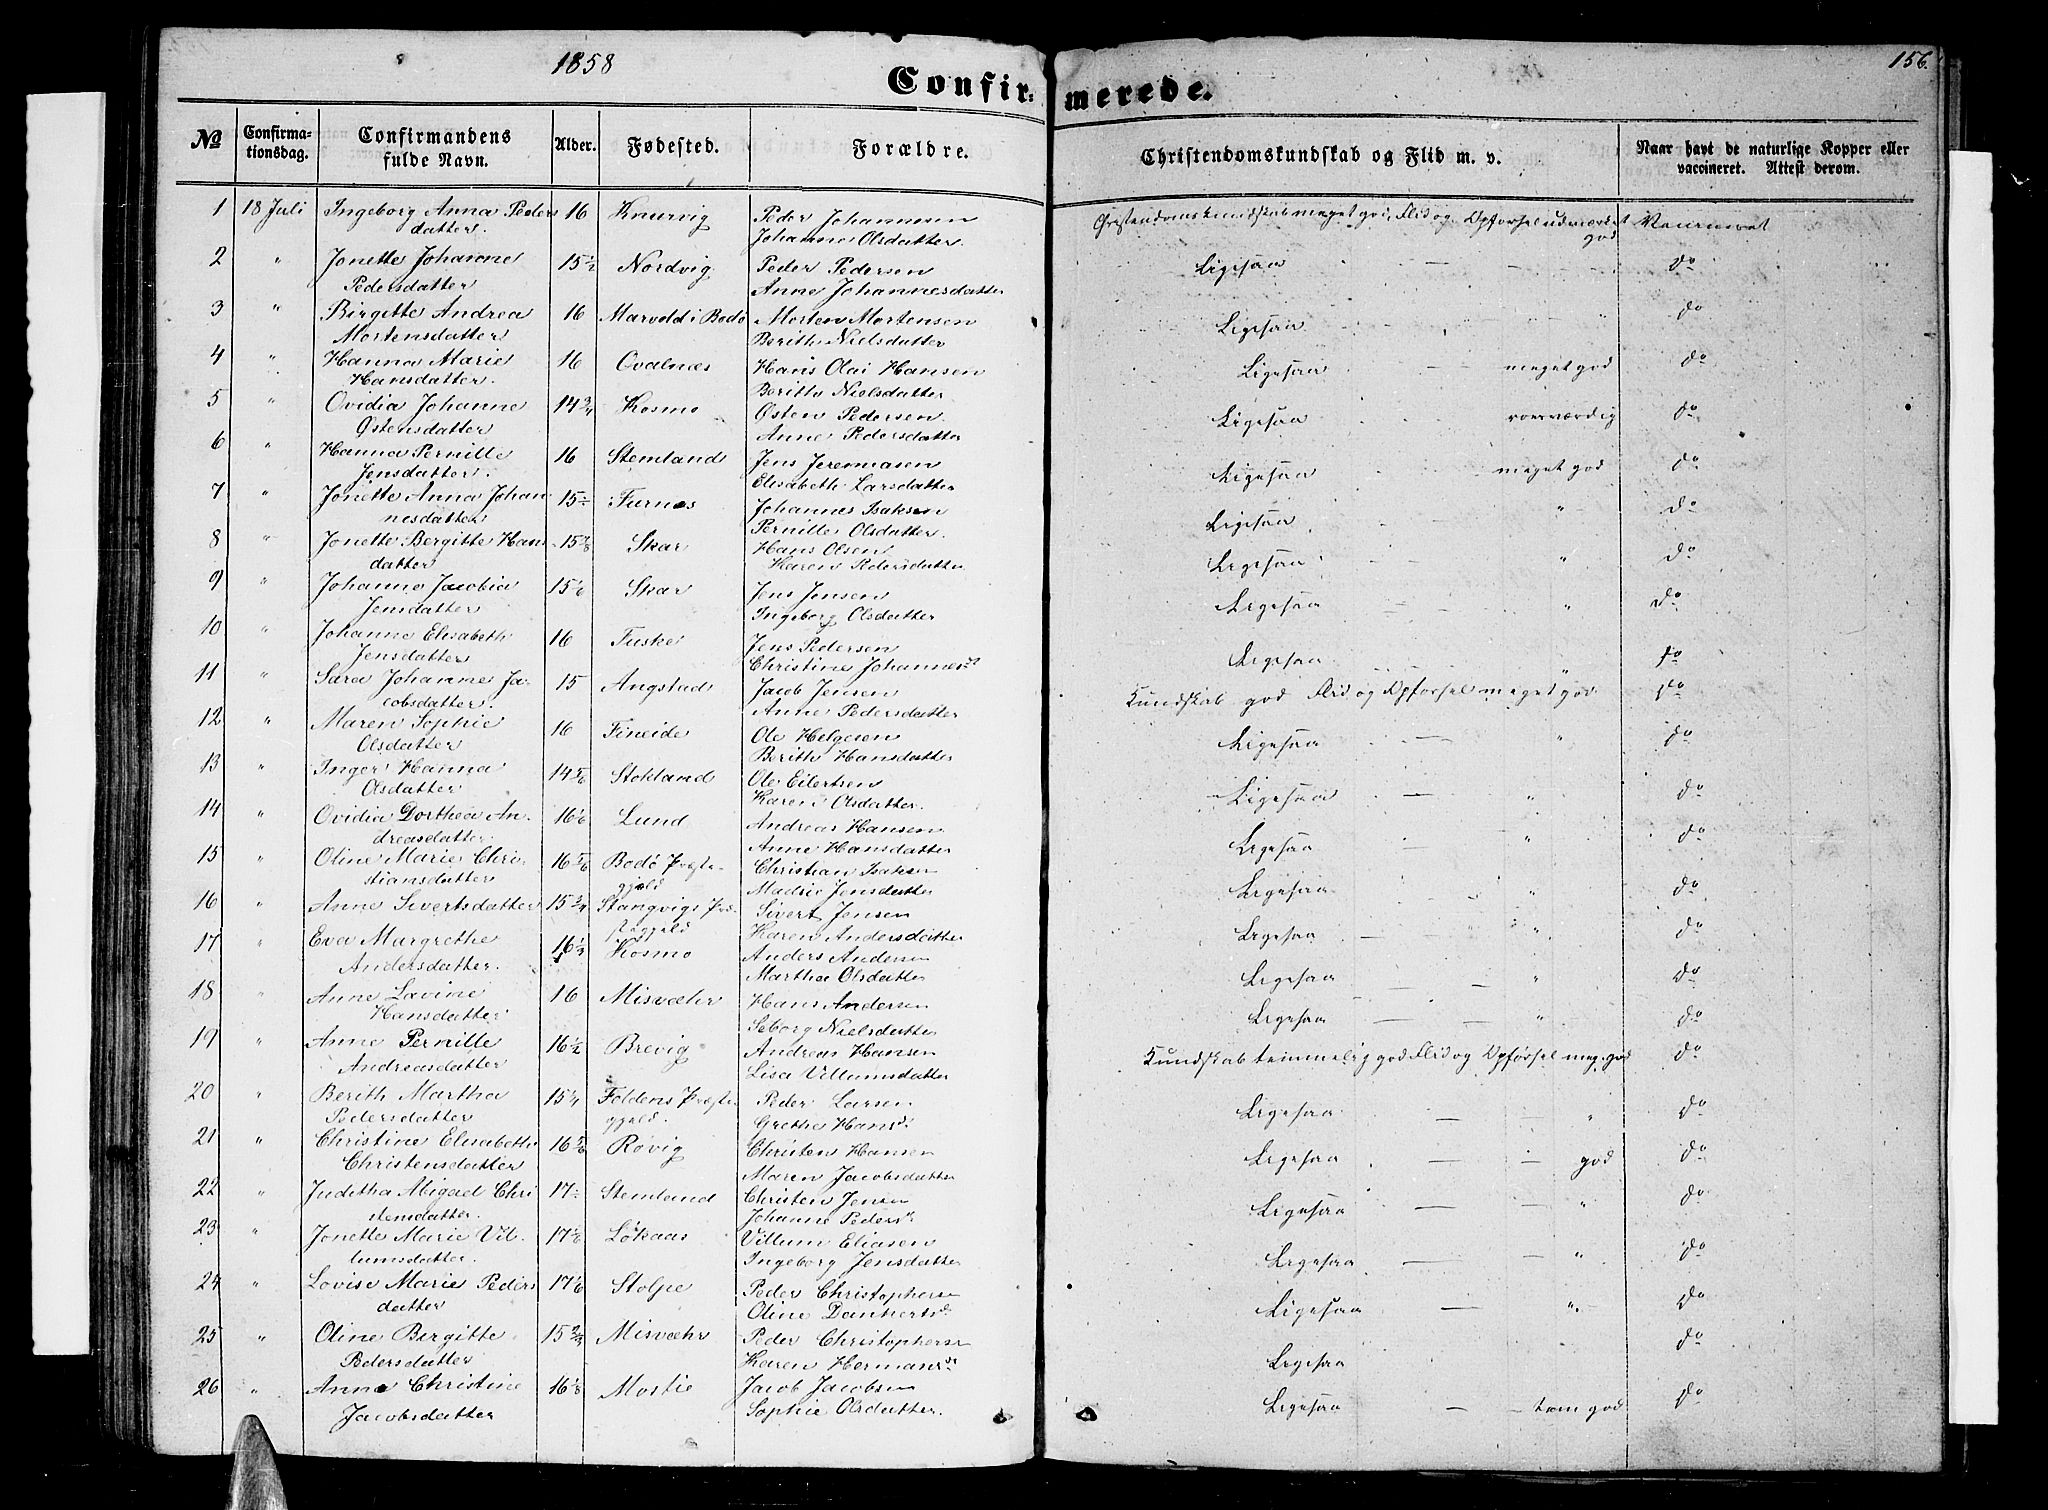 1858
156.
Confirmerede.
No
Confirmationsdag.
Confirmandens fulde Navn.
Alder.
Fødested.
Forældre.
Christendomskundskab og Flid m. v.
Naar havt de naturlige Kopper eller vaccineret. Attest derom.
1 18 Juli Ingeborg Anna Peders 16 Knurvig Peder Johannesen meget god, Flid og Opførsel udmærket
datter. Johanna Olsdatter. god
2 " Jonette Johanne 15 1/2 Nordvig Peder Pedersen Ligesaa — — do
Pedersdatter Anne Johannesdatter
3 " Birgitte Andrea 16 i Bodø Morten Mortensen Ligesaa " do
Mortensdatter Berith Nielsdatter
4 " Hanna Marie 16 Ovalnæs Hans Olai Hansen Ligesaa — — meget god do
Hansdatter. Berith Nielsdatter
5 " Ovidia Johanne 14 3/4 Kosmo Østen Pedersen Ligesaa do
Østensdatter Anne Pedersdatter
6 " Hanna Pernille 16 Stemland Jens Jeremiasen Ligesaa meget god do
Jensdatter. Elisabeth Larsdatter
7 " Jonette Anna Johan 15 Furnes Johannes Isaksen Ligesaa " do
nesdatter Pernille Olsdatter.
8 " Jonette Bergitte Hans 15 Skar Hans Olsen Ligesaa " do
datter Karen Pedersdatter
9 " Johanna Jacobia 15 Skar Jens Jensen Ligesaa " do
Jensdatter Ingeborg Olsdatter
10 " Johanne Elisabeth 16 Fuske Jens Pedersen Ligesaa " do
Jensdatter Christine Johannesd
11 " Sara Johanne Ja- 15 Angstad Jacob Jensen Kundskab god Flid og Opførsel meget god do
cobsdatter. Anne Pedersdatter
12 " Maren Sophie 16 Fineide Ole Helgesen Ligesaa — " do
Olsdatter Berith Hansdatter
13 " Inger Hanna 14 5/6 Stokland Ole Eilertsen Ligesaa — " do
Olsdatter Karen Olsdatter.
14 " Ovidia Dorthea An- 16 1/6 Lund Andreas Hansen Ligesaa — " do
dreasdatter Anne Hansdatter
15 " Oline Marie Chri- 16 5/6 Bodø Præste- Christian Isaksen Ligesaa " do
stiansdatter gjæld Jensdatter
16 " Anne Sivertsdatter 15 3/4 Stangvigs Præ- Sivert Jensen Ligesaa — " do
stegjæld Karen Andersdatter
17 " Eva Margrethe 16 Kosmo Anders Andersen Ligesaa — — " do
Andersdatter. Martha Olsdatter
18 " Anne Lavine 16 Misvæhr Hans Andersen Ligesaa — — " do
Hansdatter Seborg Nielsdatter
19 " Anne Pernille 16 1/2 Brevig Andreas Hansen Kundskab temmelig god Flid og Opførsel meg. god do
Andreasdatter Lisa Villumsdatter
20 " Berith Martha 15 1/4 Foldens Præste- Peder Larsen Ligesaa — — " do
Pedersdatter gjæld. Grethe Hansd
21 " Christine Elisabeth 16 Røvig Christen Hansen Ligesaa — — god do
Christensdatter Maren Jacobsdatter
22 " Juditha Abigael Chri 17 Stemland Christen Jensen Ligesaa — — " do
stensdatter. Johanne Peders
23 " Jonette Marie Vil- 17 1/6 Løkaas Villum Eliasen Ligesaa — — " do
lumsdatter. Ingeborg Jensdatter
24 " Lovise Marie Peders 17 1/6 Stolpe Peder Christophersen Ligesaa — — " do
datter Oline Dankertsd
25 " Oline Birgitte 15 Misvæhr Peder Christophersen Ligesaa do
Pedersdatter Karen Hermansd
26 " Anne Christine 16 1/8 Jacob Jacobsen Ligesaa — — tem god do
Jacobsdatter Sophie Olsdatter.